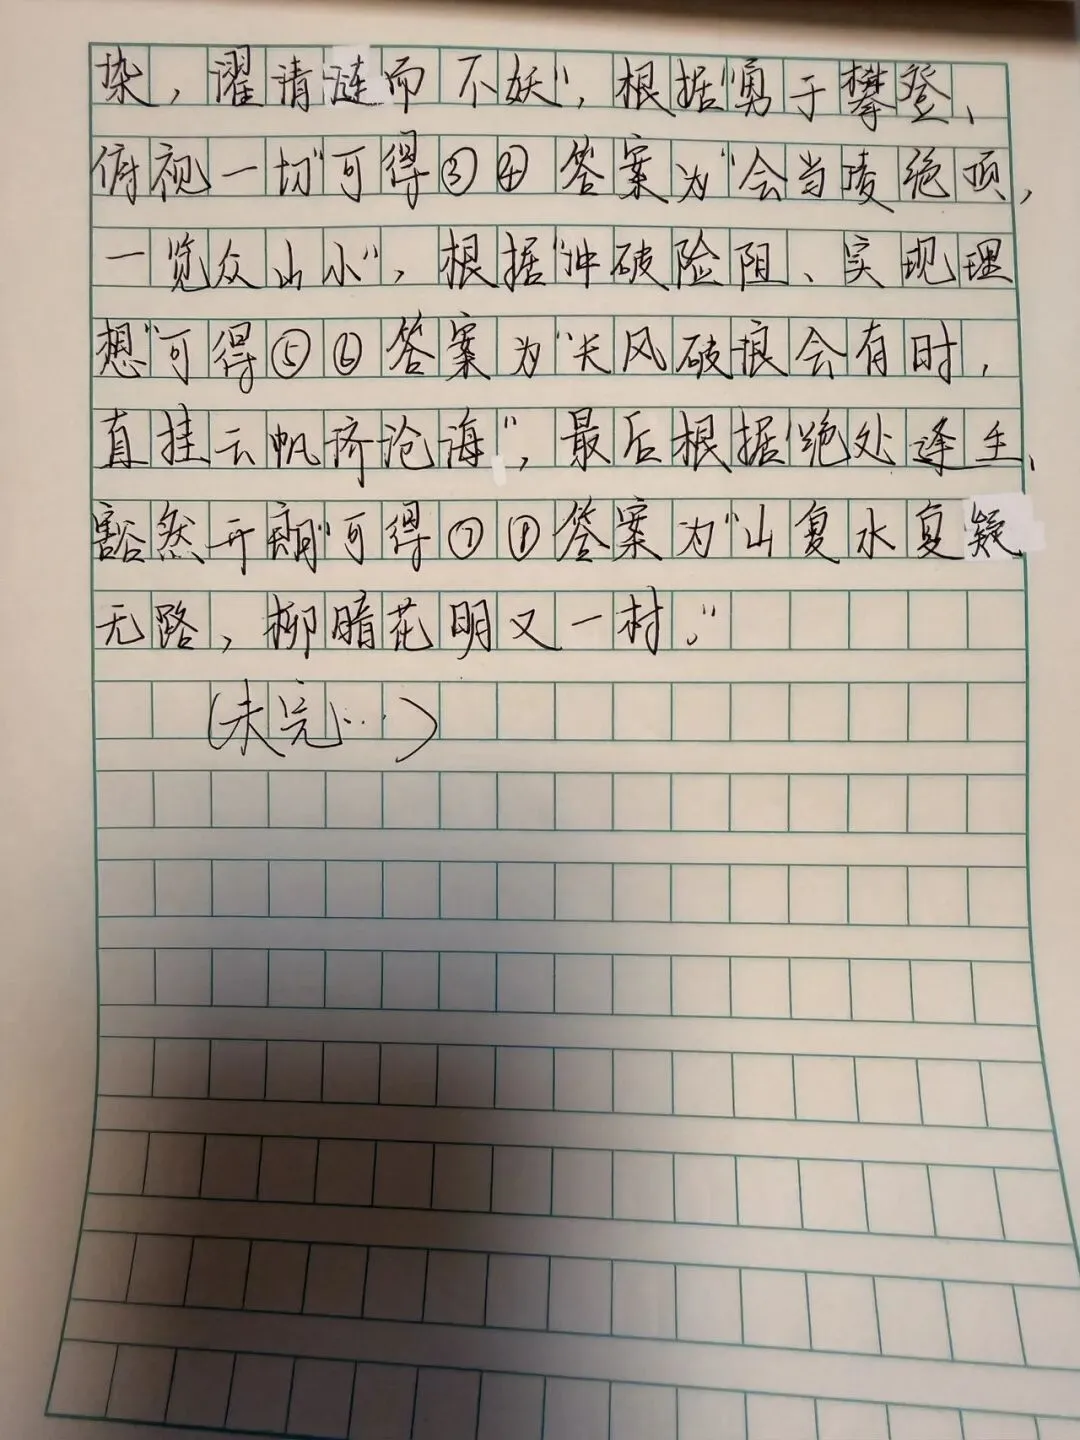 染，濯清涟而不妖"，根据"勇于攀登、
俯视一切"可得③④答案为"会当凌绝顶，
一览众山小"，根据"冲破险阻、实现理
想"可得⑤⑥答案为"长风破浪会有时，
直挂云帆济沧海"，最后根据"绝处逢生、
豁然开朗"可得⑦⑧答案为"山复水复疑
无路，柳暗花明又一村。"
（未完…）